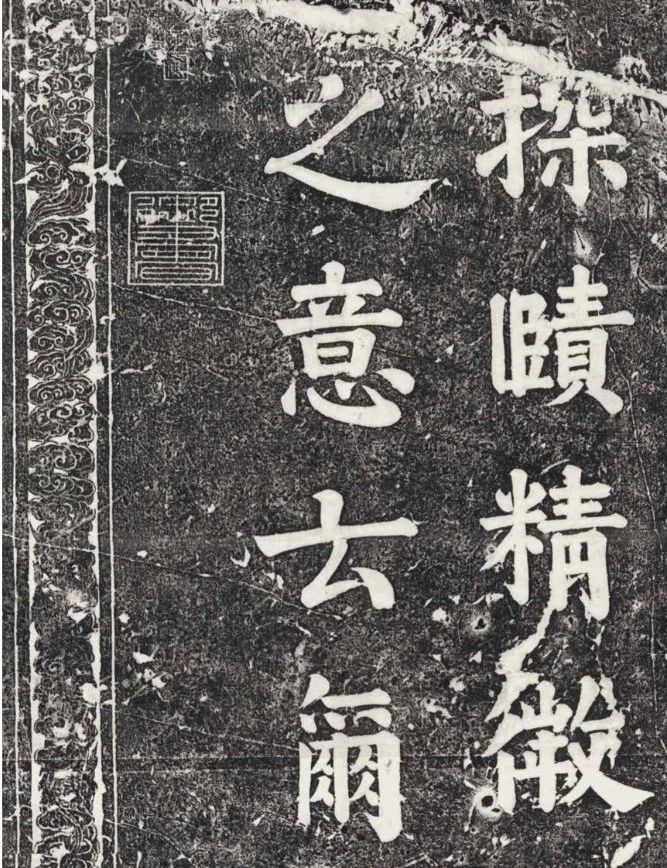 探賾精微
之意云爾